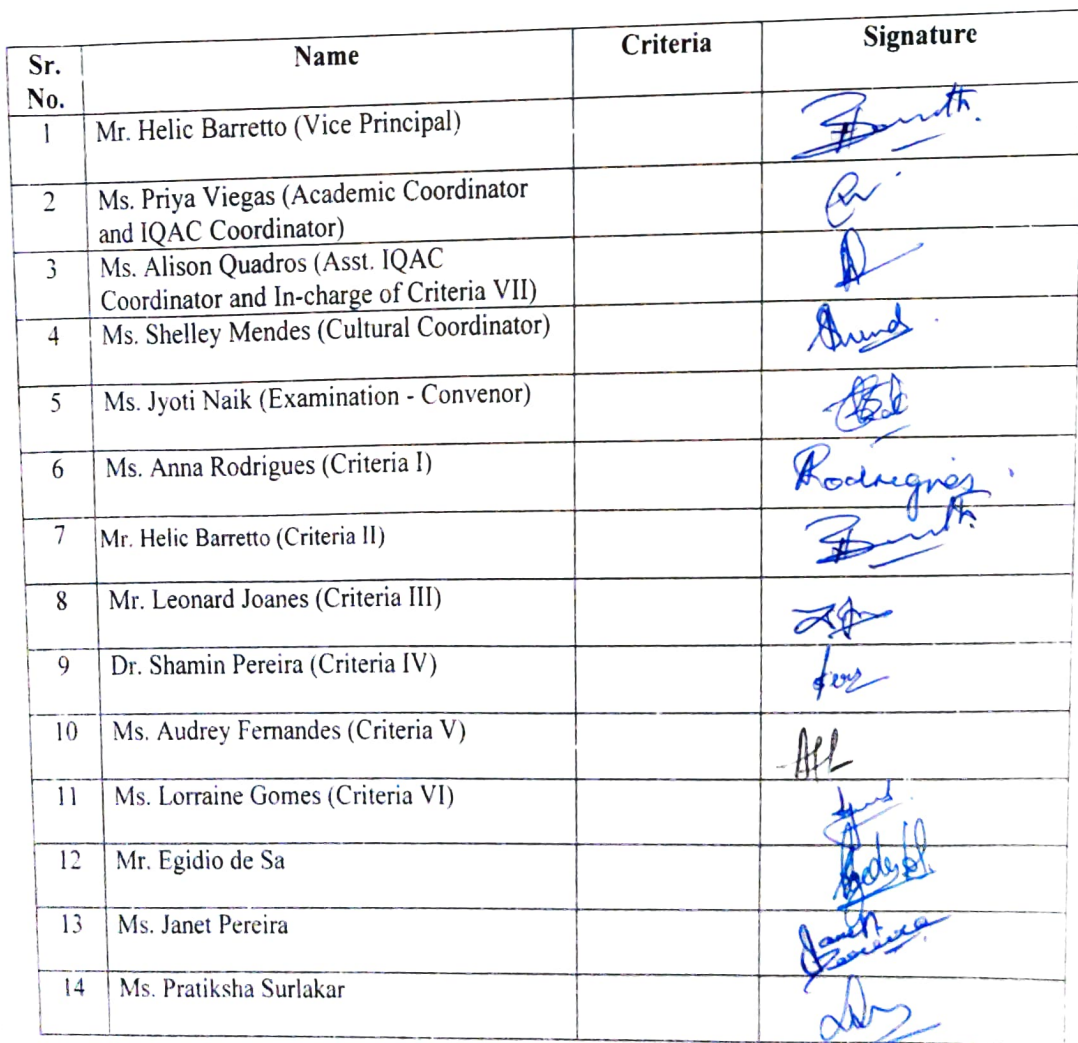 Sr. No. Name Criteria Signature
1 Mr. Helic Barretto (Vice Principal)
2 Ms. Priya Viegas (Academic Coordinator
and IQAC Coordinator)
3 Ms. Alison Quadros (Asst. IQAC
Coordinator and In-charge of Criteria VII)
4 Ms. Shelley Mendes (Cultural Coordinator)
5 Ms. Jyoti Naik (Examination - Convenor)
6 Ms. Anna Rodrigues (Criteria I) Rodrigues
7 Mr. Helic Barretto (Criteria II)
8 Mr. Leonard Joanes (Criteria III)
9 Dr. Shamin Pereira (Criteria IV)
10 Ms. Audrey Fernandes (Criteria V)
11 Ms. Lorraine Gomes (Criteria VI)
12 Mr. Egidio de Sa
13 Ms. Janet Pereira Janet
Pereira
14 Ms. Pratiksha Surlakar